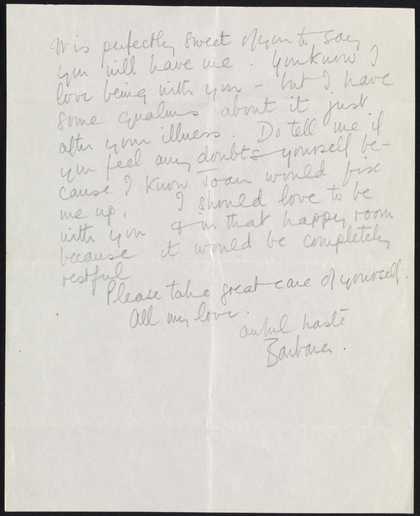 It is perfectly sweet of you to say
you will have me. You know I
love being with you – but I have
some qualms about it just
after your illness. Do tell me if
you feel any doubts yourself be-
cause I know Joan would fix
me up. I should love to be
with you & in that happy room
because it would be completely
restful
Please take great care of yourself.
All my love.
awful haste
Barbara.